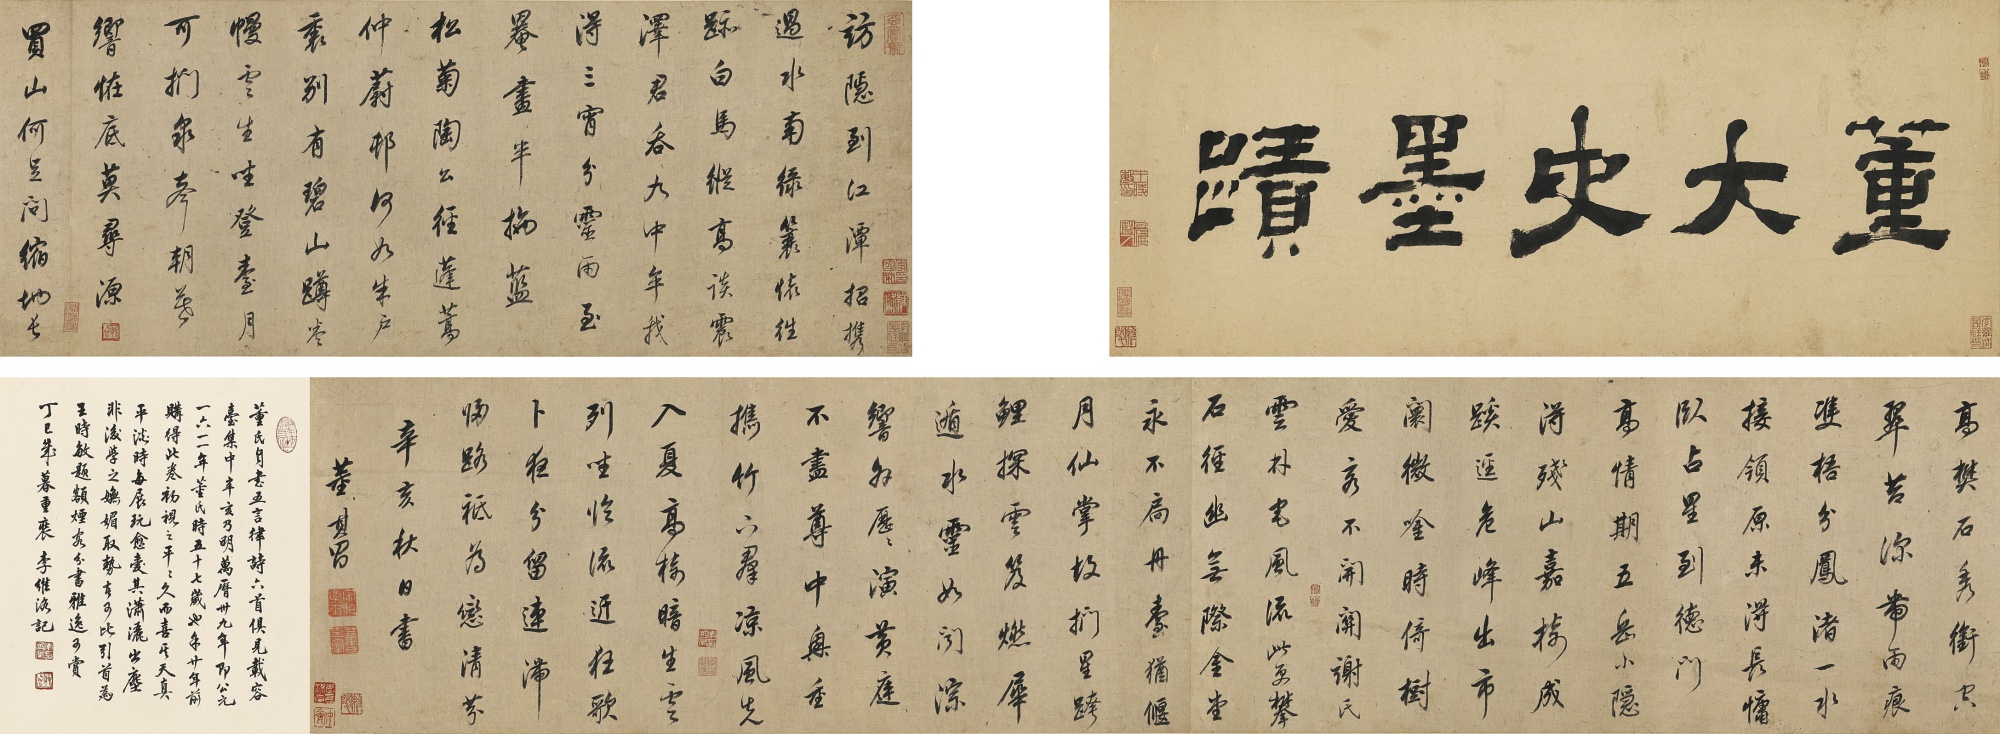 董大史墨蹟
訪隱到江潭招攜
過水南綠蓑憶往
跡白馬縱高談震
澤君吞九中年我
得三宵分靈雨至
罨畫半揄藍
松菊陶公徑蓬蒿
仲蔚邨何如朱戶
裏別有碧山蹲岑
幔雲生坐登臺月
可捫泉牽朝暮
響恠底莫尋源
買山何足問縮地長
高樊石秀銜空
翠苔深帶雨痕
雙梧分鳳渚一水
接領原未得長慵
臥占星到德門
高情期五岳小隱
得殘山嘉樹成
蹊逕危峰出市
闤微唫時倚樹
愛客不開關謝氏
雲林宅風流此可攀
石徑幽無際金堂
永不扃丹臺猶偃
月仙掌故捫星跨
鯉探雲笈燃犀
遁水靈如聞淙
響外歷歷演黃庭
不盡尊中興重
攜竹下群涼風先
入夏高樹暗生雲
列坐臨流近狂歌
卜夜分留連滯
歸路祗為戀清芬
辛亥秋日書
董其昌
董氏自書五言律詩六首俱見載容
臺集中辛亥乃明萬曆卅九年即公元
一六一一年董氏時五十七歲也余廿年前
購得此卷初視之平平久而喜其天真
平淡時每展玩愈愛其瀟灑出塵
非後學之嫵媚取勢者可比引首為
王時敏題額煙客分書雅逸可賞
丁巳歲暮重裝 李維洛記